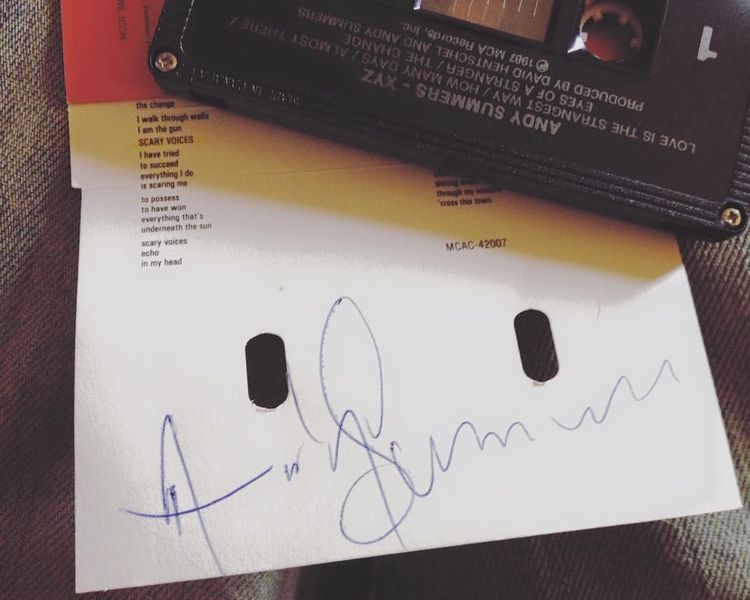 the change
I walk through walls
I am the gun
SCARY VOICES
I have tried
to succeed
everything I do
is scaring me
to possess
to have won
everything that's
underneath the sun
scary voices
echo
in my head
through my
'cross this town
MCAC-42007
1
ANDY SUMMERS - XYZ
LOVE IS THE STRANGEST WAY / HOW MANY DAYS / ALMOST THERE /
EYES OF A STRANGER / THE CHANGE
PRODUCED BY DAVID HENTSCHEL AND ANDY SUMMERS
℗1987 MCA Records, Inc.
MADE IN CANADA
Andy Summers